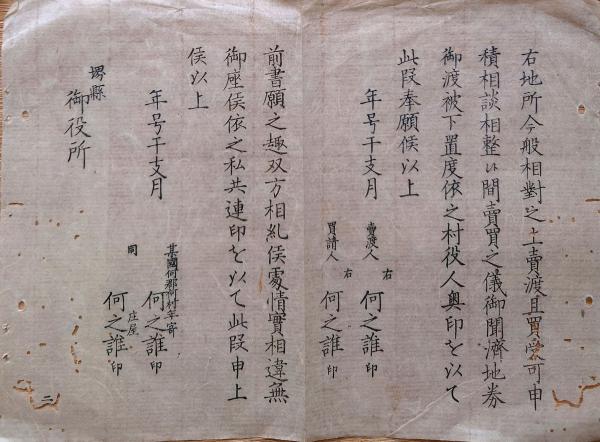 右地所今般相對之上賣渡且買受可申
積相談相整候間賣買之儀御聞濟地券
御渡被下置度依之村役人奥印を以て
此段奉願候以上
年号干支月
賣渡人 右 何之誰 印
買請人 右 何之誰 印
前書願之趣双方相糺候處情實相違無
御座候依之私共連印を以て此段申上
候以上
年号干支月
某國何郡何村年寄 何之誰 印
同 庄屋 何之誰 印
堺縣
御役所
二